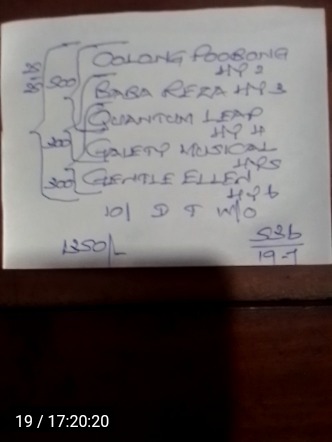 OOLONG POOBONG
HP 2
500
BABA REZA HP 3
QUANTUM LEAP
HP 4
200
GAIETY MUSICAL
HP5
300
GENTLE ELLEN
HP 6
10/ D T W/O
1350/-
536
19-7
19 / 17:20:20